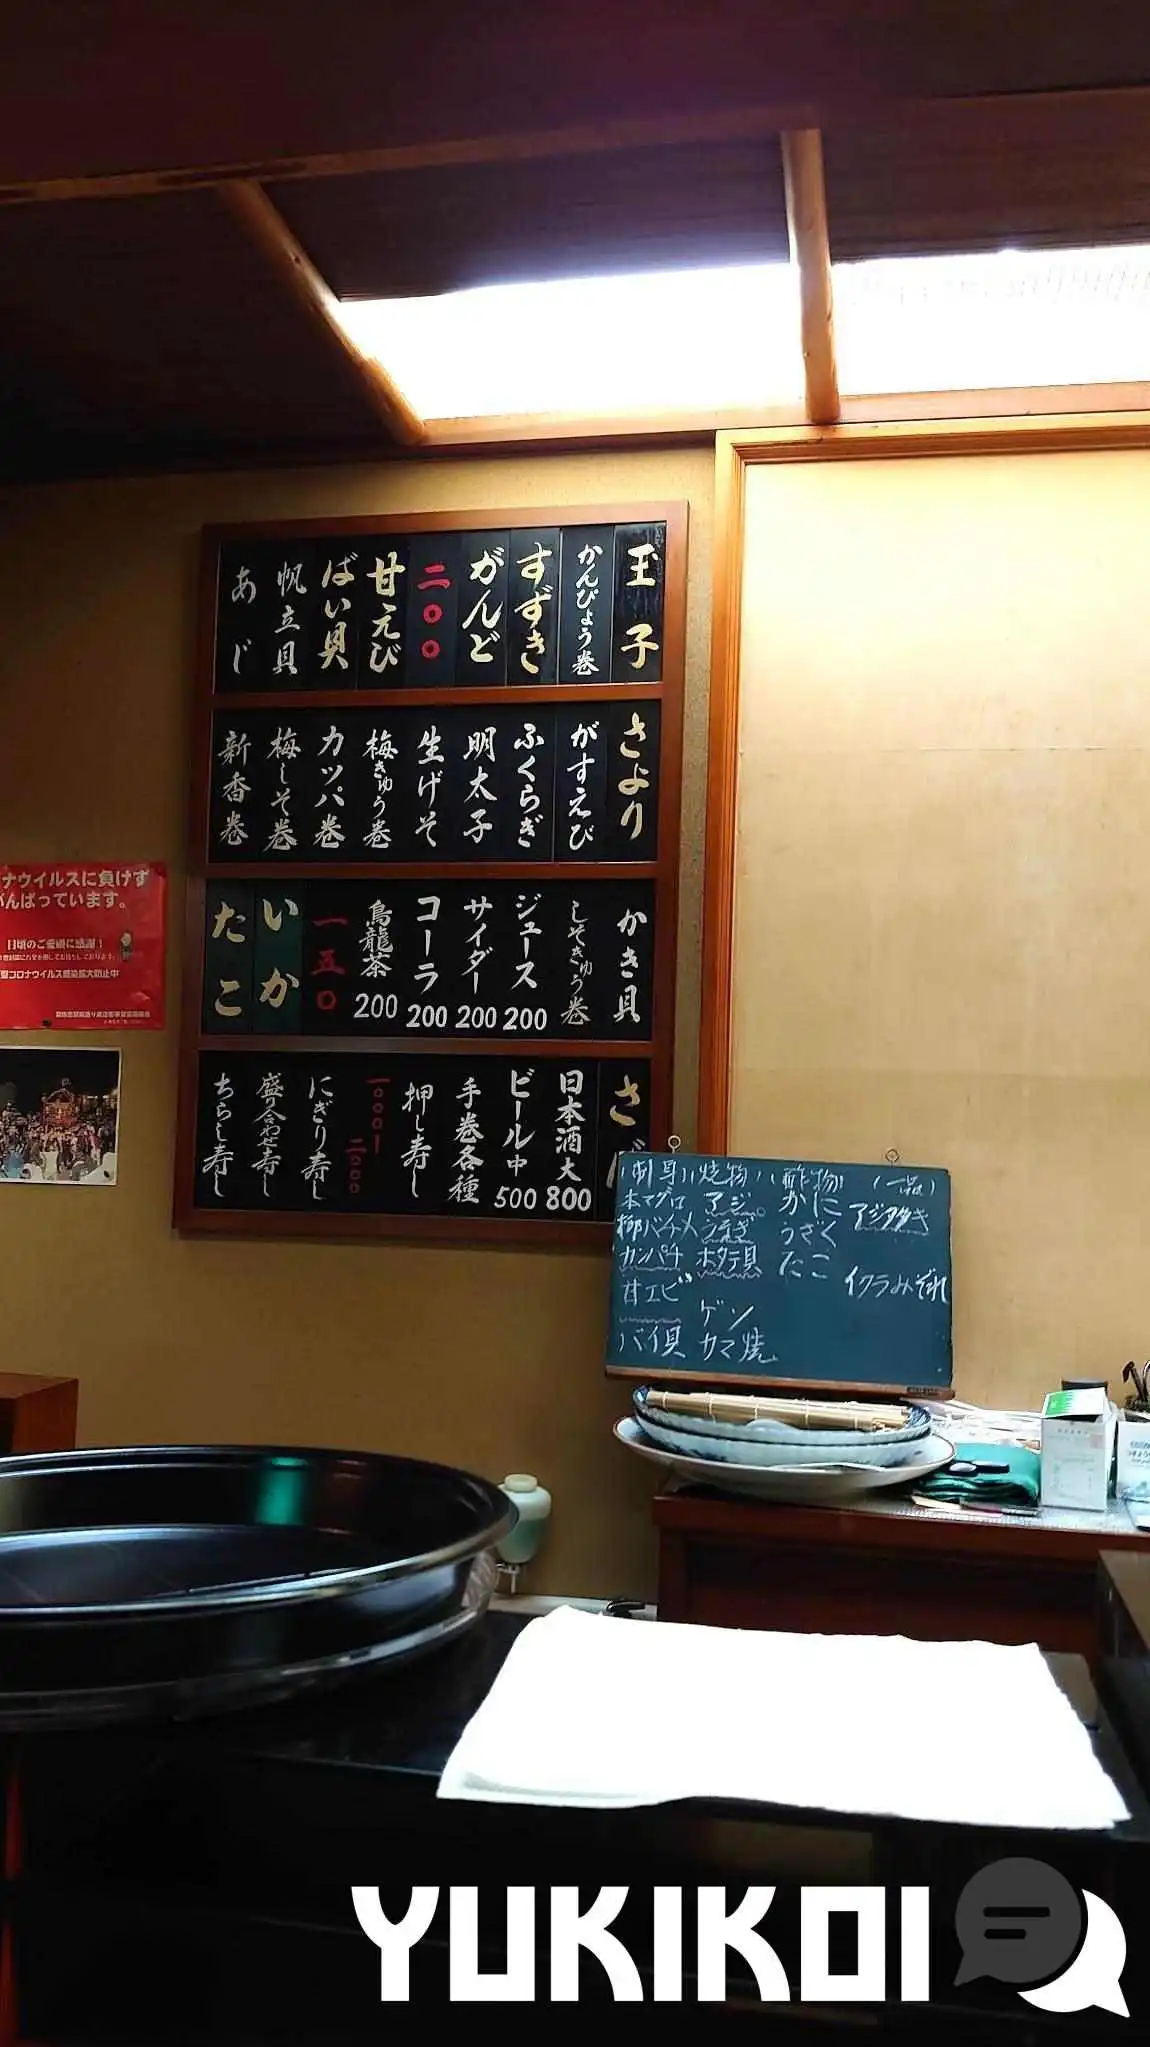 玉子
かんぴょう巻
すずき
がんど
二〇〇
甘えび
ばい貝
帆立貝
あじ
さより
がすえび
ふくらぎ
明太子
生げそ
梅きゅう巻
カッパ巻
梅しそ巻
新香巻
かき貝
しそきゅう巻
ジュース 200
サイダー 200
コーラ 200
烏龍茶 200
一五〇
いか
たこ
さば
日本酒大 800
ビール中 500
手巻各種
押し寿し
一〇〇〇 二〇〇〇
にぎり寿し
盛り合わせ寿し
ちらし寿し
ナウイルスに負けず
がんばっています。
日頃のご愛顧に感謝！
コロナウイルス感染拡大防止中
(刺身)
本マグロ
柳バチメ
カンパチ
甘エビ
バイ貝
(焼物)
アジ
うなぎ
ホタテ貝
ゲソ
カマ焼
(酢物)
かに
うざく
たこ
(一品)
アジタタキ
イクラみぞれ
YUKIKOI